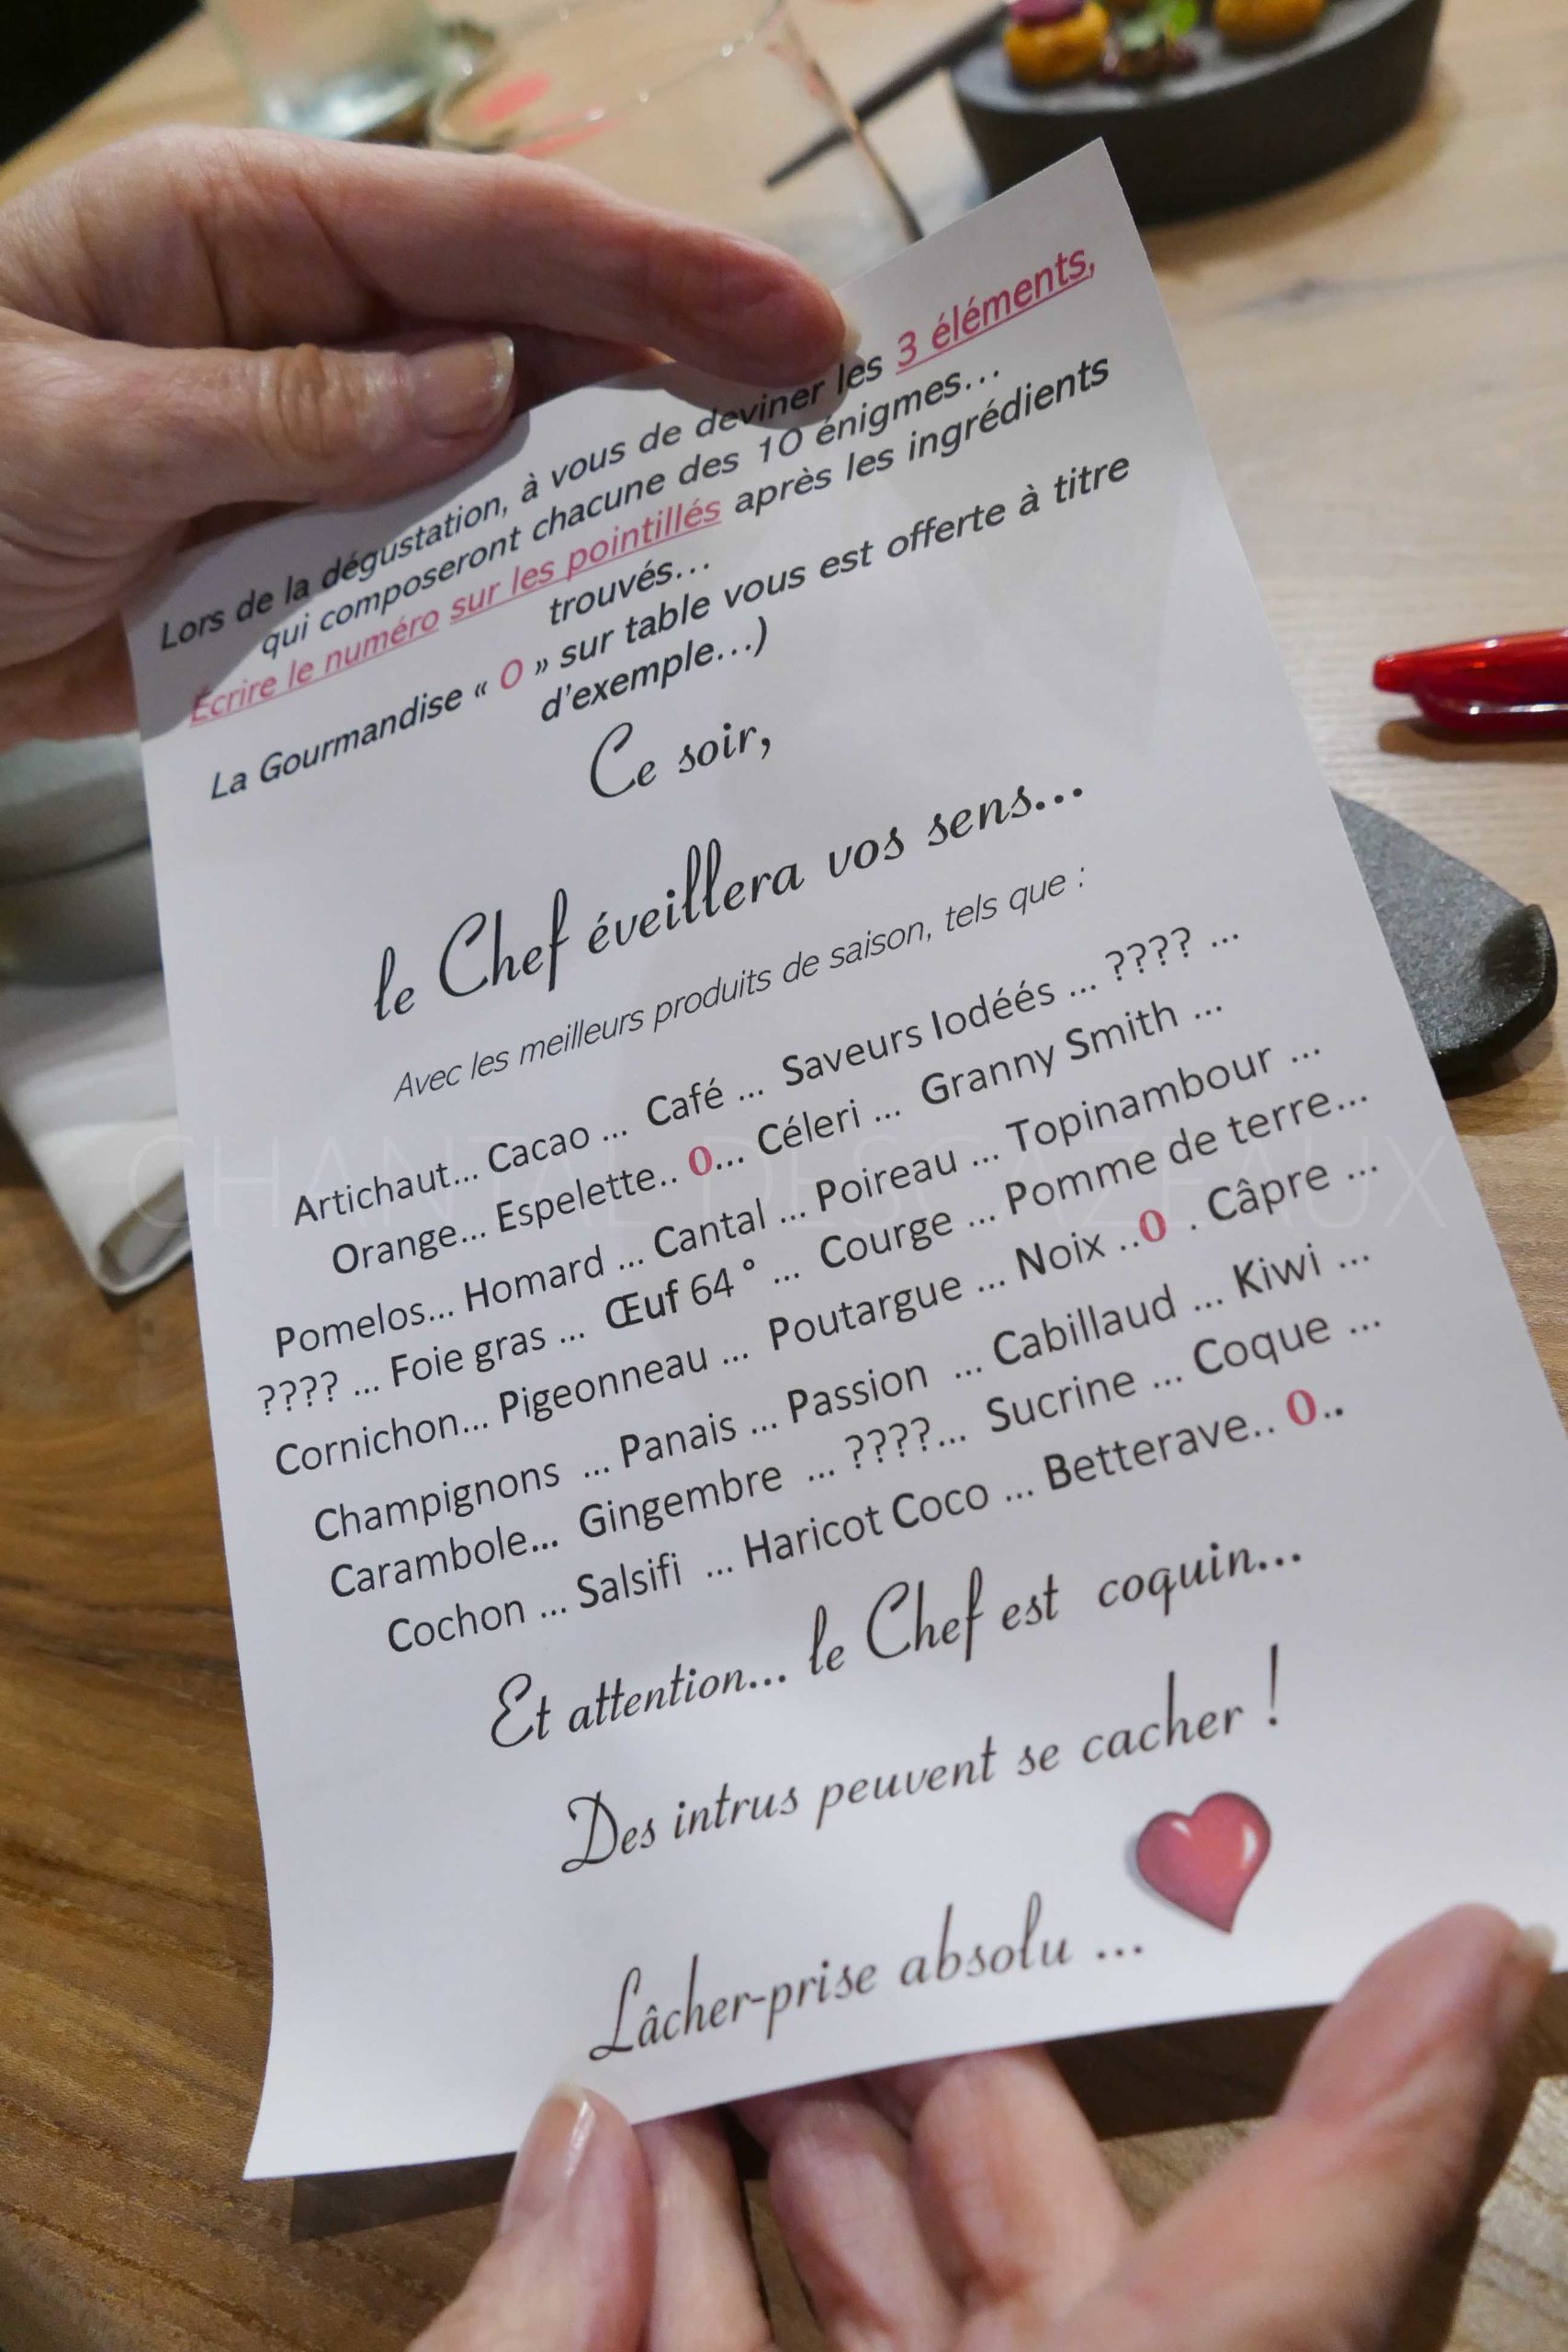 Lors de la dégustation, à vous de deviner les 3 éléments,
qui composeront chacune des 10 énigmes...
Écrire le numéro sur les pointillés après les ingrédients
trouvés...
La Gourmandise « 0 » sur table vous est offerte à titre
d'exemple...)
Ce soir,
le Chef éveillera vos sens...
Avec les meilleurs produits de saison, tels que :
Artichaut... Cacao ... Café ... Saveurs Iodéés ... ???? ...
Orange... Espelette.. 0... Céleri ... Granny Smith ...
Pomelos... Homard ... Cantal ... Poireau ... Topinambour ...
???? ... Foie gras ... Œuf 64 ° ... Courge ... Pomme de terre...
Cornichon... Pigeonneau ... Poutargue ... Noix ..0 . Câpre ...
Champignons ... Panais ... Passion ... Cabillaud ... Kiwi ...
Carambole... Gingembre ... ????... Sucrine ... Coque ...
Cochon ... Salsifi ... Haricot Coco ... Betterave.. 0..
Et attention... le Chef est coquin...
Des intrus peuvent se cacher !
Lâcher-prise absolu ...
CHANTAL DESCAZEAUX